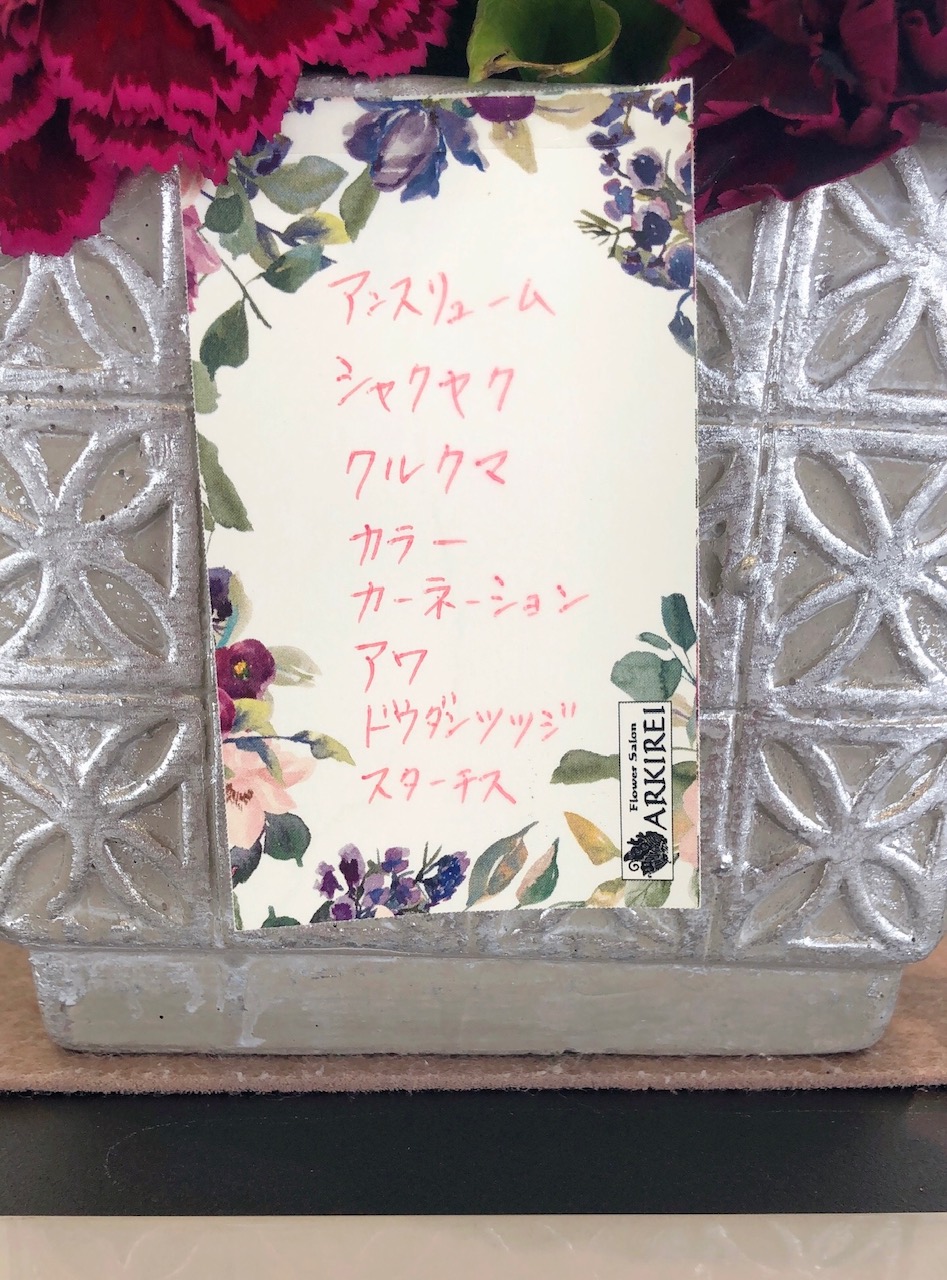 アンスリューム
シャクヤク
クルクマ
カラー
カーネーション
アワ
ドウダンツツジ
スターチス
Flower Salon
ARKIREI